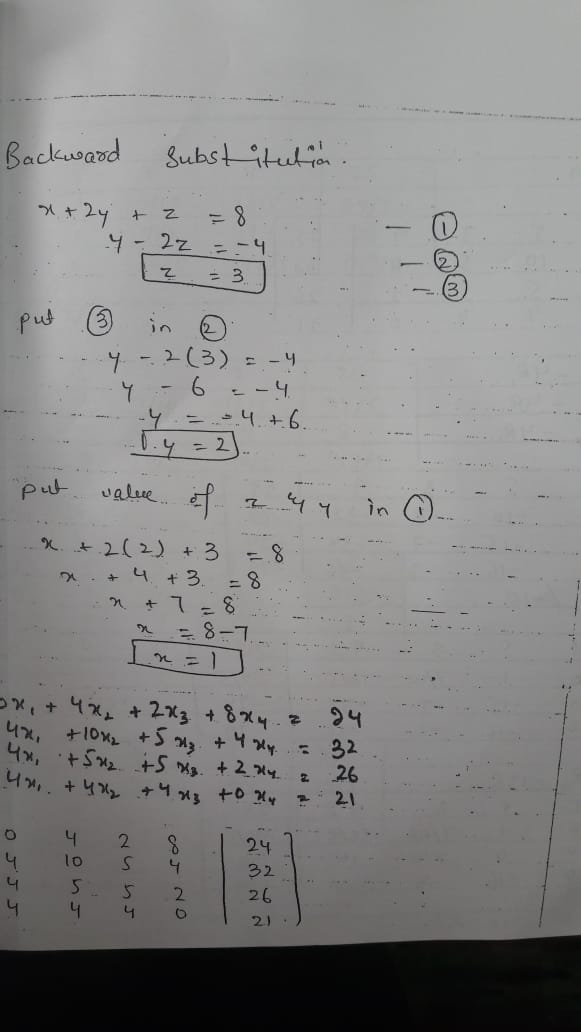 Backward Substitution.
x + 2y + z = 8 — ①
y - 2z = -4 — ②
z = 3 — ③
put ③ in ②
y - 2(3) = -4
y - 6 = -4
y = -4 + 6
y = 2
put value of z & y in ①
x + 2(2) + 3 = 8
x + 4 + 3 = 8
x + 7 = 8
x = 8-7
x = 1
0x₁ + 4x₂ + 2x₃ + 8x₄ = 24
4x₁ + 10x₂ + 5x₃ + 4x₄ = 32
4x₁ + 5x₂ + 5x₃ + 2x₄ = 26
4x₁ + 4x₂ + 4x₃ + 0x₄ = 21
0 4 2 8 | 24
4 10 5 4 | 32
4 5 5 2 | 26
4 4 4 0 | 21